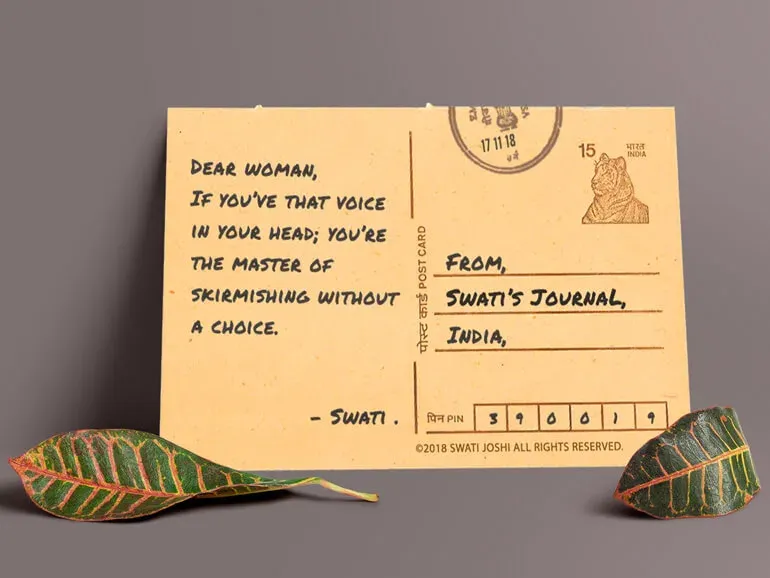 DEAR WOMAN,
IF YOU'VE THAT VOICE
IN YOUR HEAD; YOU'RE
THE MASTER OF
SKIRMISHING WITHOUT
A CHOICE.
- SWATI .
17 11 18
15
भारत
INDIA
पोस्ट कार्ड POST CARD
FROM,
SWATI'S JOURNAL,
INDIA,
पिन PIN 3 9 0 0 1 9
©2018 SWATI JOSHI ALL RIGHTS RESERVED.